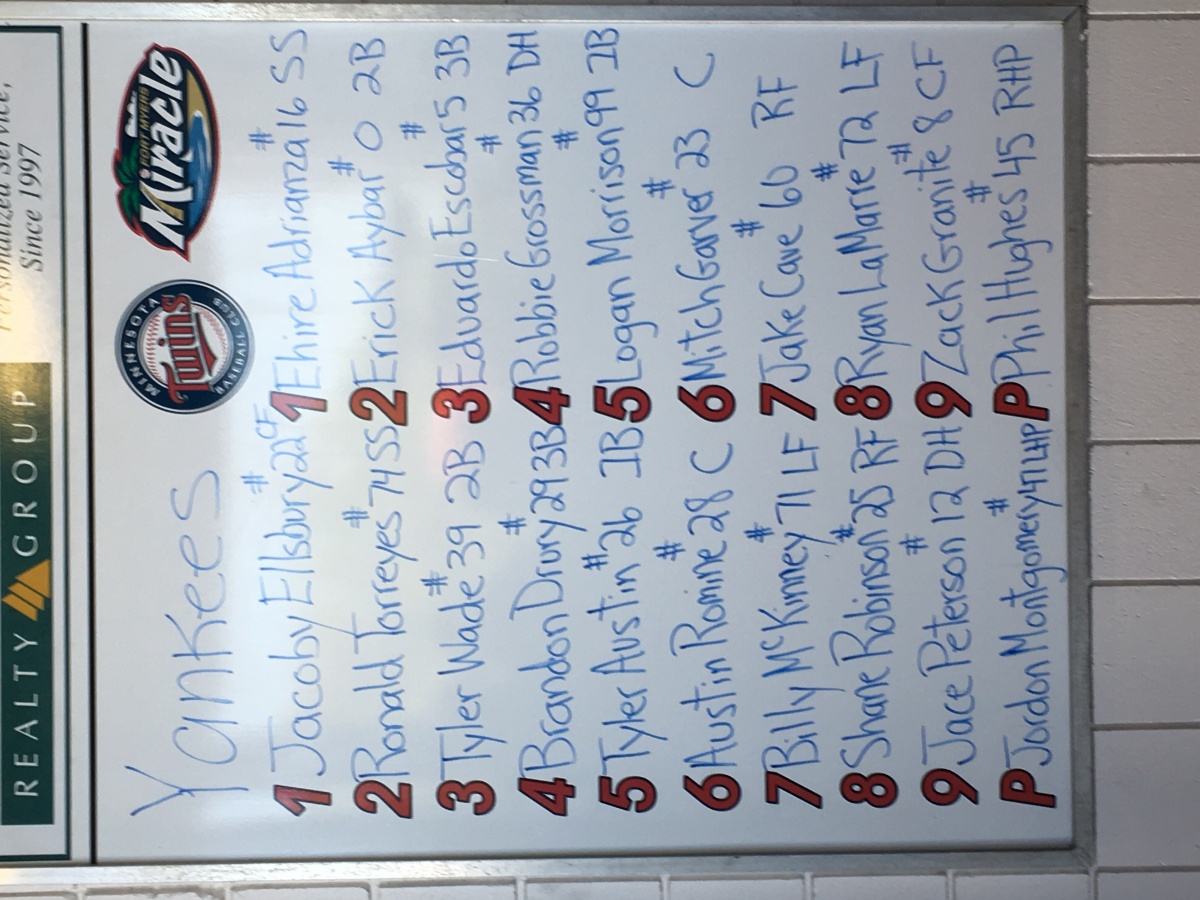 REALTY GROUP
Personalized Service,
Since 1997
Yankees
MINNESOTA
Twins
BASEBALL CLUB
FORT MYERS
Miracle
1 Jacoby Ellsbury #22 CF
2 Ronald Torreyes #74 SS
3 Tyler Wade #39 2B
4 Brandon Drury #29 3B
5 Tyler Austin #26 1B
6 Austin Romine #28 C
7 Billy McKinney #71 LF
8 Shane Robinson #25 RF
9 Jace Peterson #12 DH
P Jordon Montgomery #47 LHP
1 Ehire Adrianza #16 SS
2 Erick Aybar #0 2B
3 Eduardo Escobar #5 3B
4 Robbie Grossman #36 DH
5 Logan Morrison #99 1B
6 Mitch Garver #23 C
7 Jake Cave #60 RF
8 Ryan LaMarre #72 LF
9 Zack Granite #8 CF
P Phil Hughes #45 RHP